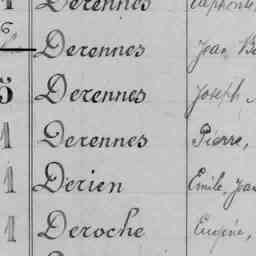 Derennes
6 Derennes Jean
5 Derennes Joseph
1 Derennes Pierre,
1 Derien Emile, Jean
1 Deroche Eugène,